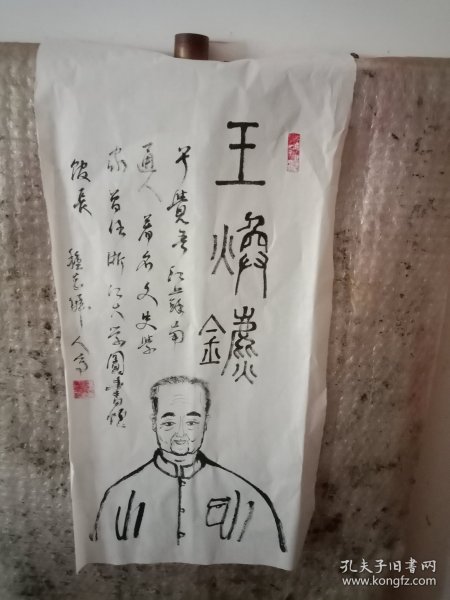 王焕镳
字觉吾江苏南
通人著名文史学
家曾任浙江大学图书馆
馆长
孔夫子旧书网
www.kongfz.com